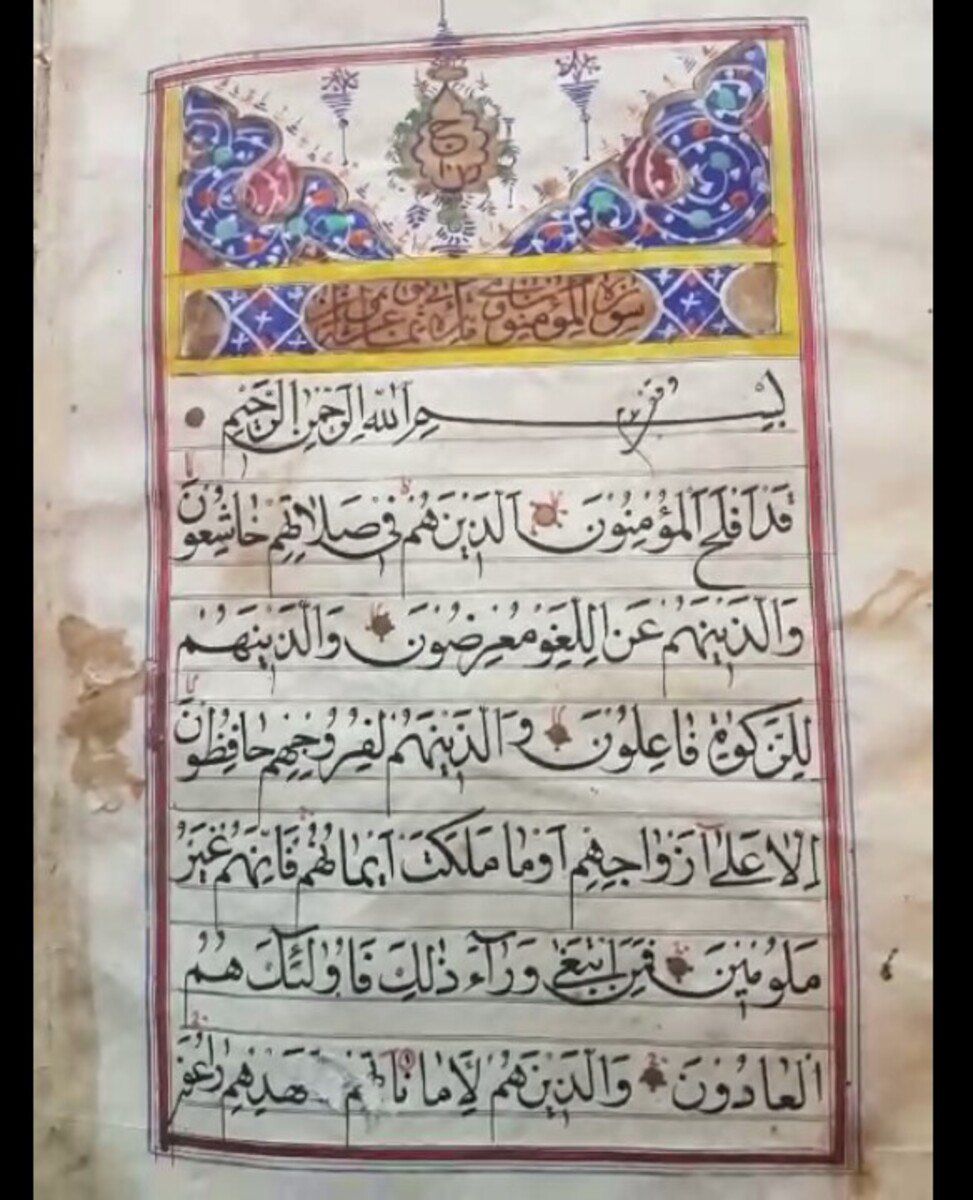 سورة المؤمنون
بِسْمِ اللّٰهِ الرَّحْمٰنِ الرَّحِيمِ
قَدْ أَفْلَحَ الْمُؤْمِنُونَ الَّذِينَ هُمْ فِي صَلَاتِهِمْ خَاشِعُونَ
وَالَّذِينَهُمْ عَنِ اللَّغْوِ مُعْرِضُونَ وَالَّذِينَهُمْ
لِلزَّكٰوةِ فَاعِلُونَ وَالَّذِينَهُمْ لِفُرُوجِهِمْ حَافِظُونَ
إِلَّا عَلَىٰٓ أَزْوَاجِهِمْ أَوْ مَا مَلَكَتْ أَيْمَانُهُمْ فَإِنَّهُمْ غَيْرُ
مَلُومِينَ فَمَنِ ابْتَغَىٰ وَرَآءَ ذٰلِكَ فَأُولٰٓئِكَ هُمُ
الْعَادُونَ وَالَّذِينَ هُمْ لِأَمَانَاتِهِمْ وَعَهْدِهِمْ رَاعُونَ